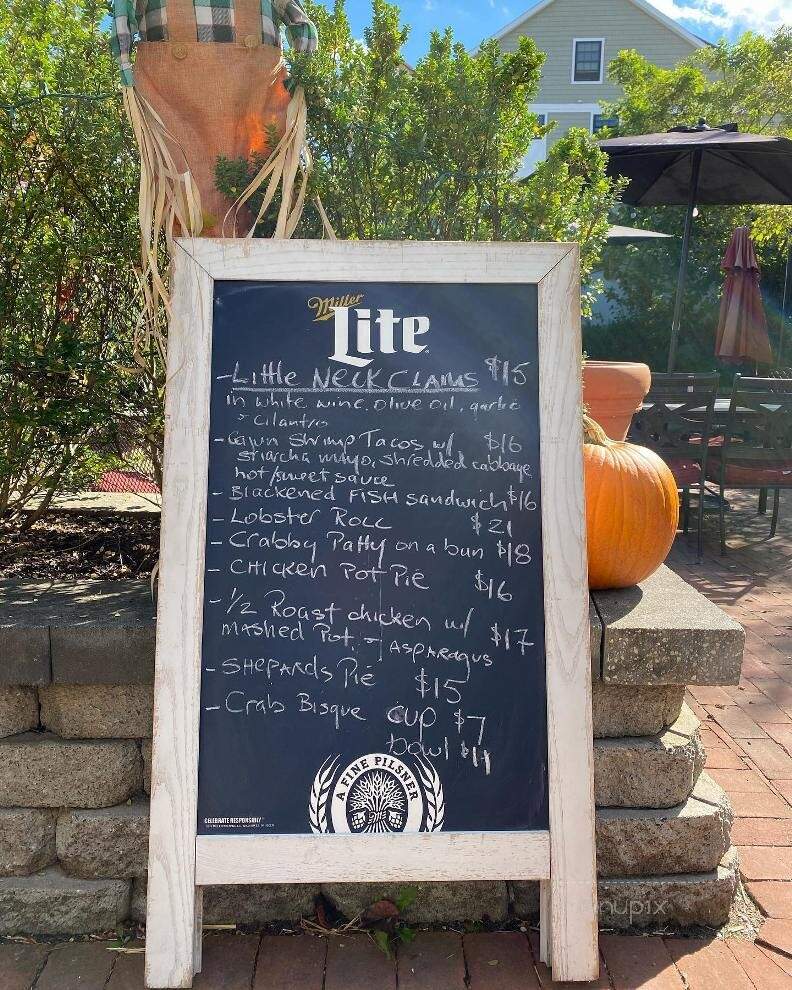 Miller
Lite
- Little Neck Clams $15
in white wine, olive oil, garlic
- Cilantro
- Cajun Shrimp Tacos w/ $16
sriarcha mayo, shredded cabbage
hot/sweet sauce
- Blackened Fish sandwich $16
- Lobster Roll $21
- Crabby Patty on a bun $18
- Chicken Pot Pie $16
- 1/2 Roast chicken w/ $17
mashed Pot. - Asparagus
- Shepards Pie $15
- Crab Bisque cup $7
bowl $11
A FINE PILSNER
CELEBRATE RESPONSIBLY